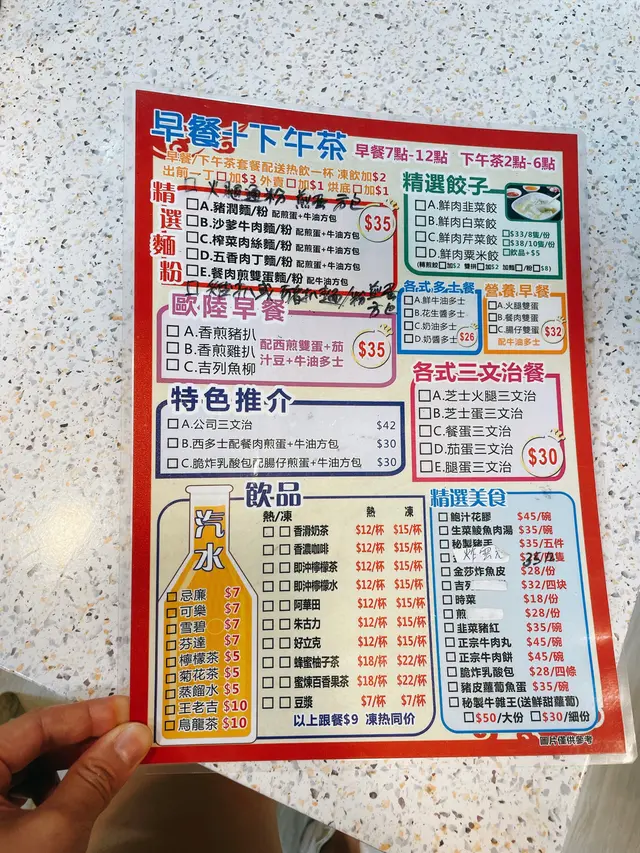 早餐+下午茶 早餐7點-12點 下午茶2點-6點
早餐/下午茶套餐配送熱飲一杯 凍飲加$2
出前一丁□加$3 外賣□加$1 烘底□加$1
精選麵粉
□A.豬潤麵/粉 配煎蛋+牛油方包
□B.沙爹牛肉麵/粉 配煎蛋+牛油方包
□C.榨菜肉絲麵/粉 配煎蛋+牛油方包
□D.五香肉丁麵/粉 配煎蛋+牛油方包
□E.餐肉煎雙蛋麵/粉 配牛油方包
$35
精選餃子
□A.鮮肉韭菜餃
□B.鮮肉白菜餃
□C.鮮肉芹菜餃
□D.鮮肉粟米餃
□$33/8隻/份
□$38/10隻/份
□飲品+$5
(轉煎餃□加$2 雙拼□加$2 加麵□/粉□$8)
歐陸早餐
□A.香煎豬扒
□B.香煎雞扒
□C.吉列魚柳
配西煎雙蛋+茄
汁豆+牛油多士
$35
各式多士餐
□A.鮮牛油多士
□B.花生醬多士
□C.奶油多士
□D.奶醬多士
$26
營養早餐
□A.火腿雙蛋
□B.餐肉雙蛋
□C.腸仔雙蛋
配牛油多士
$32
特色推介
□A.公司三文治 $42
□B.西多士配餐肉煎蛋+牛油方包 $30
□C.脆炸乳酸包配腸仔煎蛋+牛油方包 $30
各式三文治餐
□A.芝士火腿三文治
□B.芝士蛋三文治
□C.餐蛋三文治
□D.茄蛋三文治
□E.腿蛋三文治
$30
汽水
□忌廉 $7
□可樂 $7
□雪碧 $7
□芬達 $7
□檸檬茶 $5
□菊花茶 $5
□蒸餾水 $5
□王老吉 $10
□烏龍茶 $10
飲品
熱/凍 熱 凍
□□香滑奶茶 $12/杯 $15/杯
□□香濃咖啡 $12/杯 $15/杯
□□即沖檸檬茶 $12/杯 $15/杯
□□即沖檸檬水 $12/杯 $15/杯
□□阿華田 $12/杯 $15/杯
□□朱古力 $12/杯 $15/杯
□□好立克 $12/杯 $15/杯
□□蜂蜜柚子茶 $18/杯 $22/杯
□□蜜煉百香果茶 $18/杯 $22/杯
□□豆漿 $7/杯 $7/杯
以上跟餐$9 凍熱同价
精選美食
□鮑汁花膠 $45/碗
□生菜鯪魚肉湯 $35/碗
□秘製豬手 $35/五件
□金莎炸魚皮 $28/份
□吉列 $32/四块
□時菜 $18/份
□煎 $28/份
□韭菜豬紅 $35/碗
□正宗牛肉丸 $45/碗
□正宗牛肉餅 $45/碗
□脆炸乳酸包 $28/四條
□豬皮蘿蔔魚蛋 $35/碗
□秘製牛雜王(送鮮甜蘿蔔)
□$50/大份 □$30/細份
圖片僅供參考